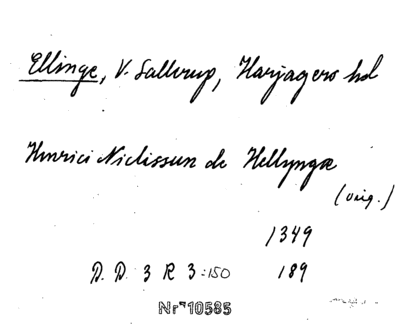 Ellinge, V. Sallerup, Harjagers hd
Henrici Niclissun de Hellyngæ
(orig.)
1349
D. D. 3 R 3:150 189
Nr 10585